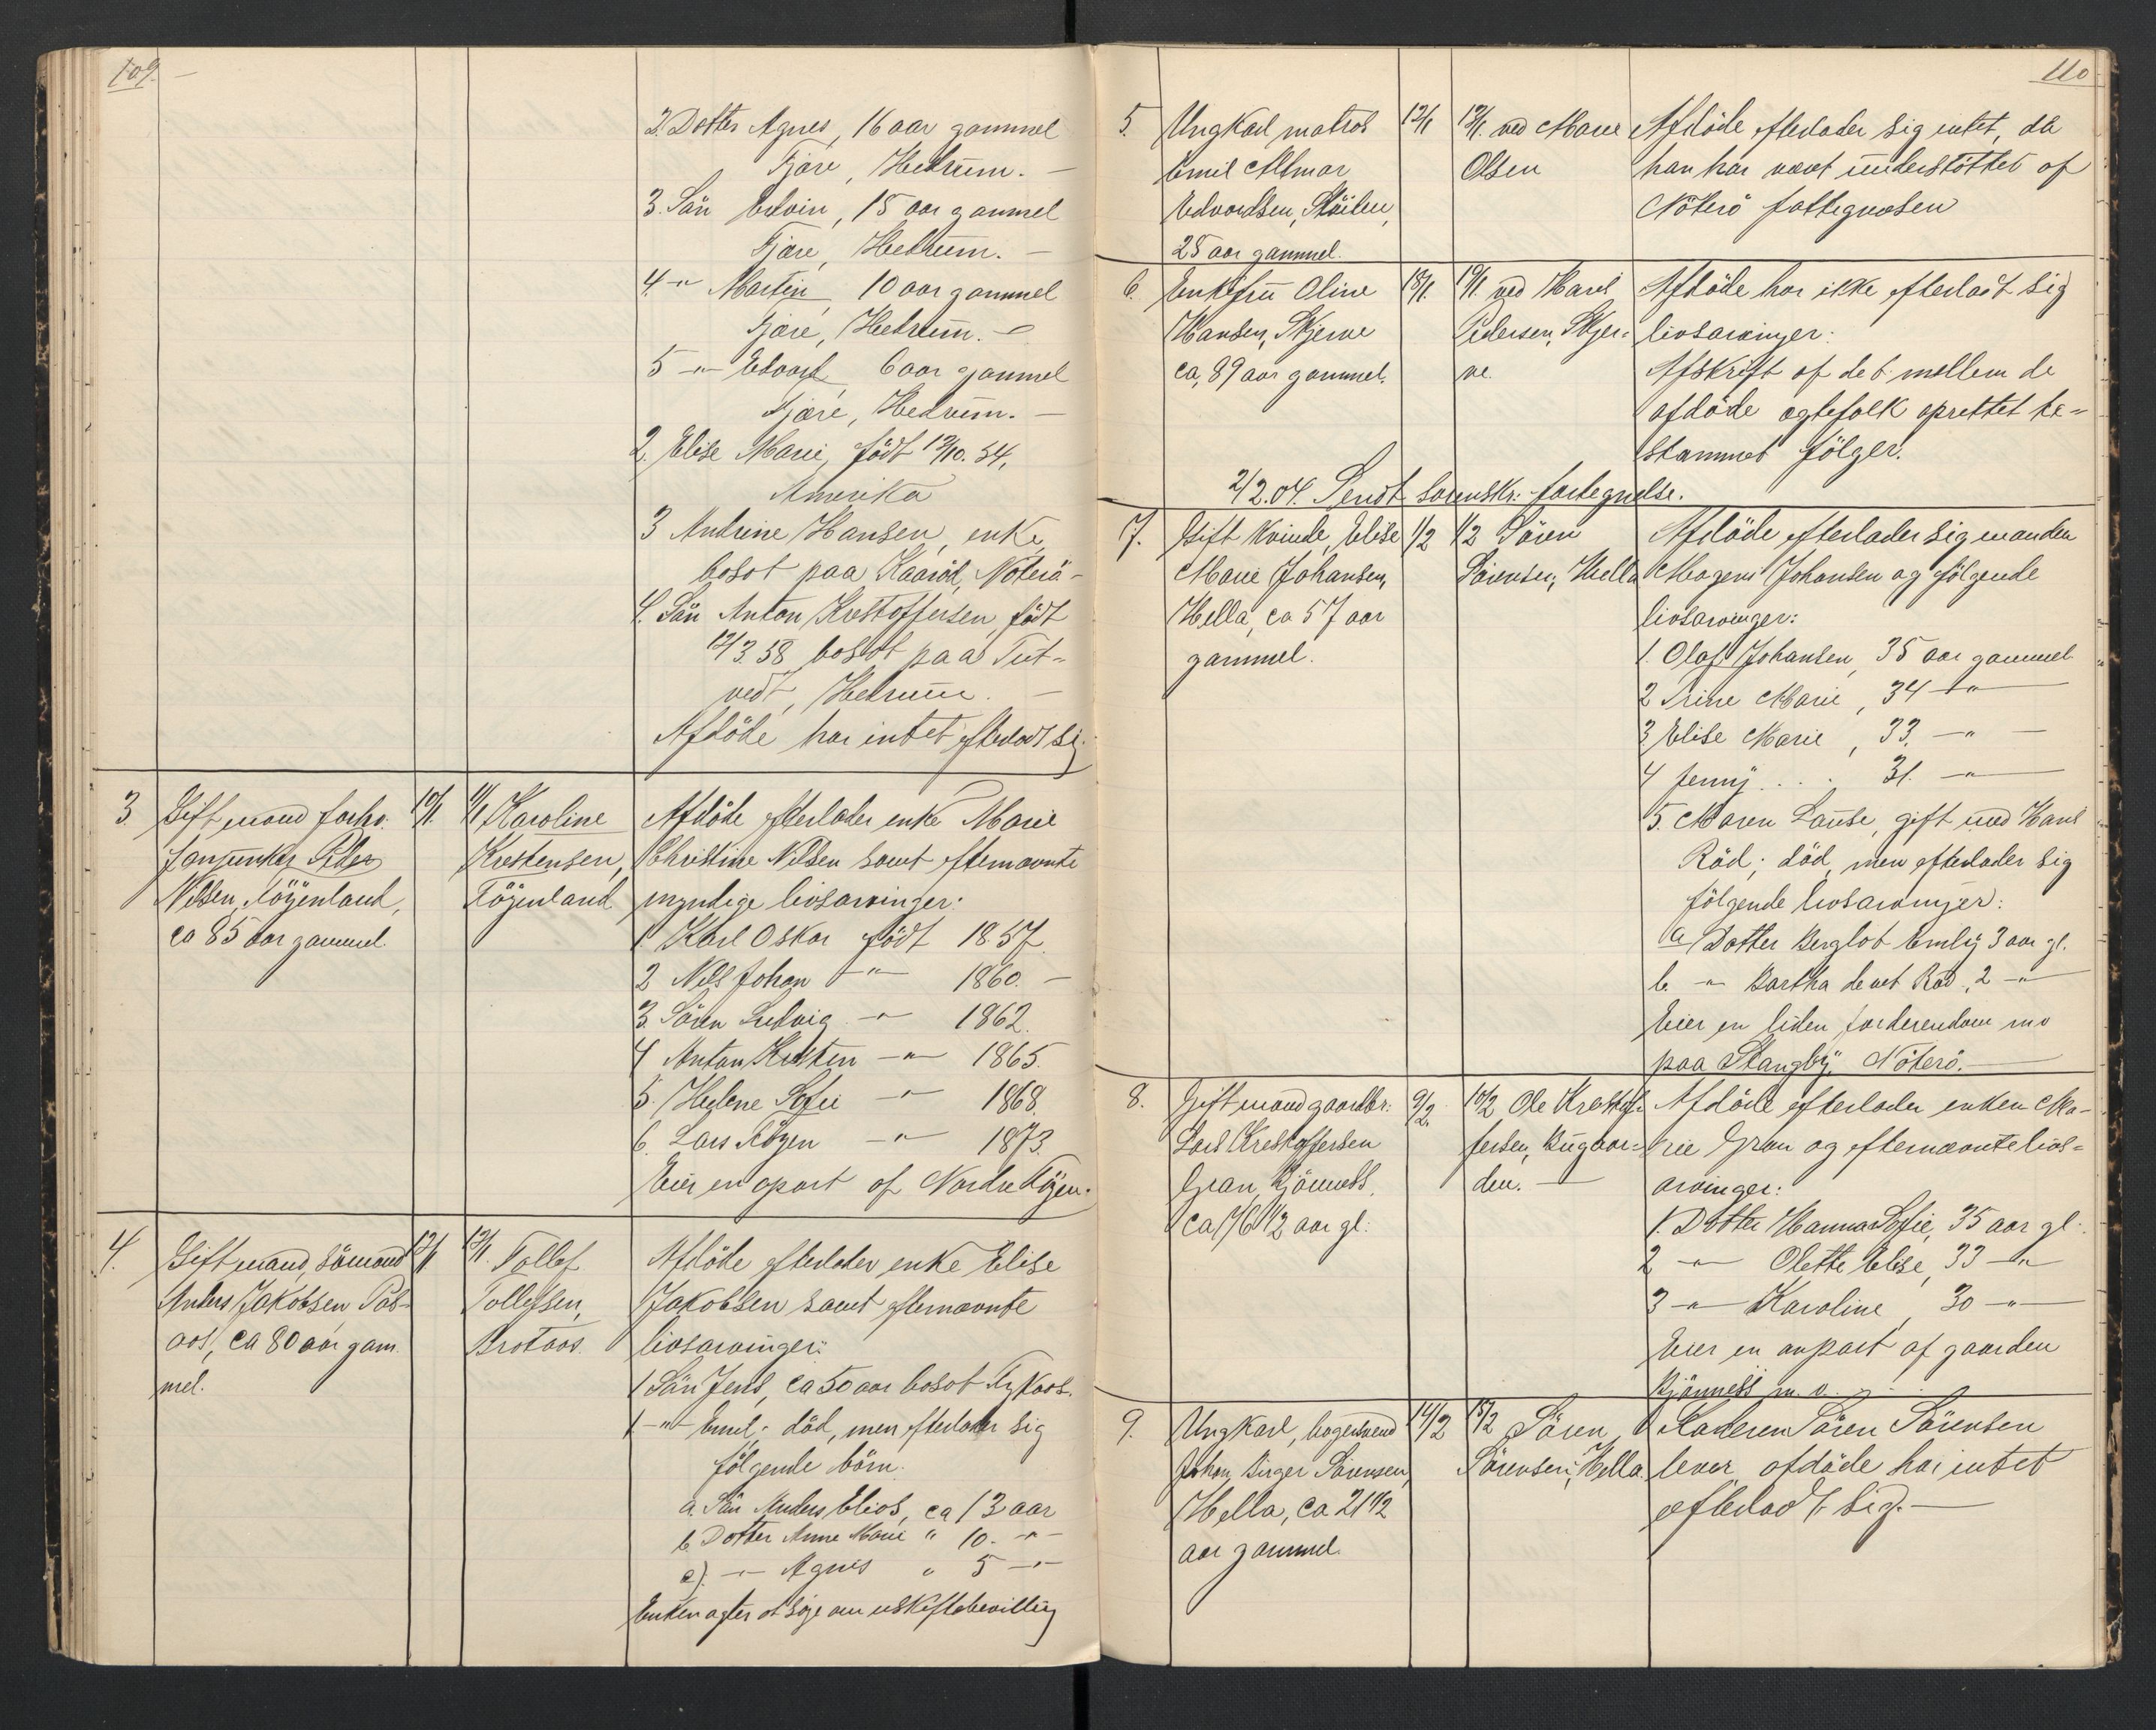 109.
2. Dotter Agnes, 16 aar gammel
Fjære, Hedrum. —
3. Sön Edvin, 15 aar gammel
Fjære, Hedrum. —
4. -"- Martin, 10 aar gammel
Fjære, Hedrum. —
5 -"- Edvard 6 aar gammel
Fjære, Hedrum. —
2. Elise Marie, födt 12/10. 54,
Amerika
3 Andrine Hansen, enke,
bosat paa Kaaröd, Nöterö -
4. Sön Anton Kristoffersen, födt
12/3 58, bosat paa Tut-
vedt, Hedrum. —
Afdöde har intet efterladt sig.
3. Gift mand forhv.
Peder
Nilsen, Föyenland,
ca 85 aar gammel.
10/1.
11/1 Karoline
Kristensen,
Föyenland
Afdöde efterlader enke Marie
Christine Nilsen samt efternævnte
myndige livsarvinger:
1 Karl Oskar födt 1857
2 Nils Johan -"- 1860. —
3. Sören Ludvig -"- 1862.
4 Anton Kristen -"- 1865.
5. Helene Sofie -"- 1868.
6. Lars Föyen -"- 1873.
Eier en apart af Nordre Föyen.
4. Gift mand, sömand
Anders Jakobsen
aas, ca 80 aar gam
mel.
12/1
12/1. Tollef
Tollefsen,
Brotaas.
Afdöde efterlader enke Elise
Jakobsen samt efternævnte
livsarvinger:
1 Sön Jens, ca 50 aar bosat
1 -"- Emil; död, men efterlader sig
følgende börn.
a. Sön Anders Elias, ca 13 aar
b Dotter Anne Marie " 10. -"-
c). -"- Agnes " 5 -"-
Enken agter at söge om uskiftebevilling
110
5. Ungkarl matros
Emil Almar
Edvardsen,
25 aar gammel.
12/1
13/1. ved Marie
Olsen
Afdöde efterlader sig intet, da
han har været understöttet af
Nöterö fattigvæsen
6. Enkefru Oline
Hansen, Skjerve
ca, 89 aar gammel.
18/1.
19/1. ved Hans
Pedersen, Skjer-
ve.
Afdöde har ikke efterladt sig
livsarvinger:
Afskrift af det mellem de
afdöde ægtefolk oprettet te-
stament fölger.
2/2.04. Sendt sorenskr. fortegnelse.
7. Gift kvinde, Elise
Marie Johansen,
Hella, ca 57 aar
gammel.
1/2
1/2 Sören
Sörensen, Hella
Afdöde efterlader sig manden
Mogens Johansen og fölgende
livsarvinger:
1. Olaf Johansen, 35 aar gammel
2 Trine Marie, 34 -"-
3. Elise Marie, 33. -"-
4 Jenny . . . 31. -"-
5. Maren Lause, gift med Hans
Röd; död, men efterlader sig
fölgende livsarvinger:
a Dotter Berglot Emily 3 aar gl.
b. -"- Bartha Röd, 2 -"-
Eier en liden
paa Stangby, Nöterö. —
8. Gift mand gaardbr.
Lars Kristoffersen
Gran, Bjönness,
ca 76 1/2 aar gl.
9/2.
10/2 Ole Kristof-
fersen, Bugaar-
den. —
Afdöde efterlader enken Ma-
rie Gran og efternævnte livs-
arvinger:
1. Dotter Hanna Sofie, 35 aar gl.
2 -"- Olette Elise, 33 -"-
3 -"- Karoline, 30 -"-
Eier en anpart af gaarden
Bjönness m. v.
9. Ungkarl, bagersvend
Johan Birger Sörensen,
Hella, ca 21 1/2
aar gammel.
14/2
15/2 Sören
Sörensen, Hella.
Faderen Sören Sörensen
lever, afdöde har intet
efterladt sig. —